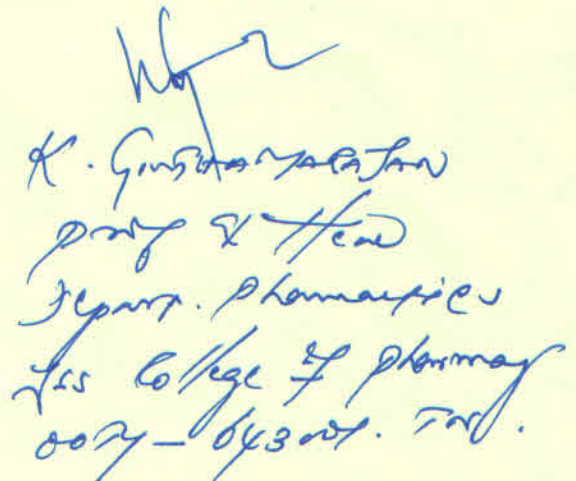 K. Gowthamarajan
Prof & Head
Depart. Pharmaceutics
JSS College of Pharmacy
Ooty - 643001. TN.